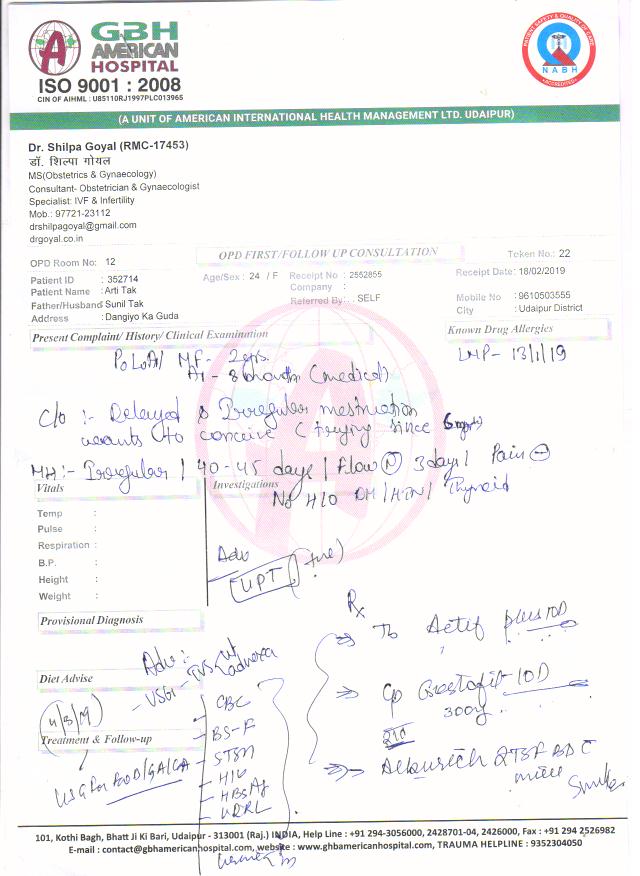 GBH
AMERICAN
HOSPITAL
ISO 9001 : 2008
CIN OF AIHML : U85110RJ1997PLC013965
PATIENT SAFETY & QUALITY OF CARE
NABH
ACCREDITED
(A UNIT OF AMERICAN INTERNATIONAL HEALTH MANAGEMENT LTD. UDAIPUR)
Dr. Shilpa Goyal (RMC-17453)
डॉ. शिल्पा गोयल
MS(Obstetrics & Gynaecology)
Consultant- Obstetrician & Gynaecologist
Specialist: IVF & Infertility
Mob.: 97721-23112
drshilpagoyal@gmail.com
drgoyal.co.in
OPD FIRST/FOLLOW UP CONSULTATION
OPD Room No: 12
Token No.: 22
Patient ID : 352714
Age/Sex : 24 / F
Receipt No : 2552855
Receipt Date: 18/02/2019
Patient Name : Arti Tak
Company :
Father/Husband Sunil Tak
Referred By: . SELF
Mobile No : 9610503555
Address : Dangiyo Ka Guda
City : Udaipur District
Present Complaint/ History/ Clinical Examination
Known Drug Allergies
P0L0A1/ MF - 2yrs.
A1 - 8 months (medical)
LMP- 13/1/19
C/o :- Delayed & Irregular mestruation
wants to conceive (trying since 6
MH:- Irregular / 40-45 days / Flow (N) 3 days / Pain
No H/O DM/HTN/ Thyroid
Vitals
Investigations
Temp :
Pulse :
Respiration :
B.P. :
Height :
Weight :
Adv
UPT (+ve)
Provisional Diagnosis
Rx
Tb plus OD
Adv:-
- USG TVS
Diet Advise
Cp OD
300
- CBC
- BS-F
- HIV
- HBsAg
- VDRL
Treatment & Follow-up
101, Kothi Bagh, Bhatt Ji Ki Bari, Udaipur - 313001 (Raj.) INDIA, Help Line : +91 294-3056000, 2428701-04, 2426000, Fax : +91 294 2526982
E-mail : contact@gbhamericanhospital.com, website : www.gbhamericanhospital.com, TRAUMA HELPLINE : 9352304050